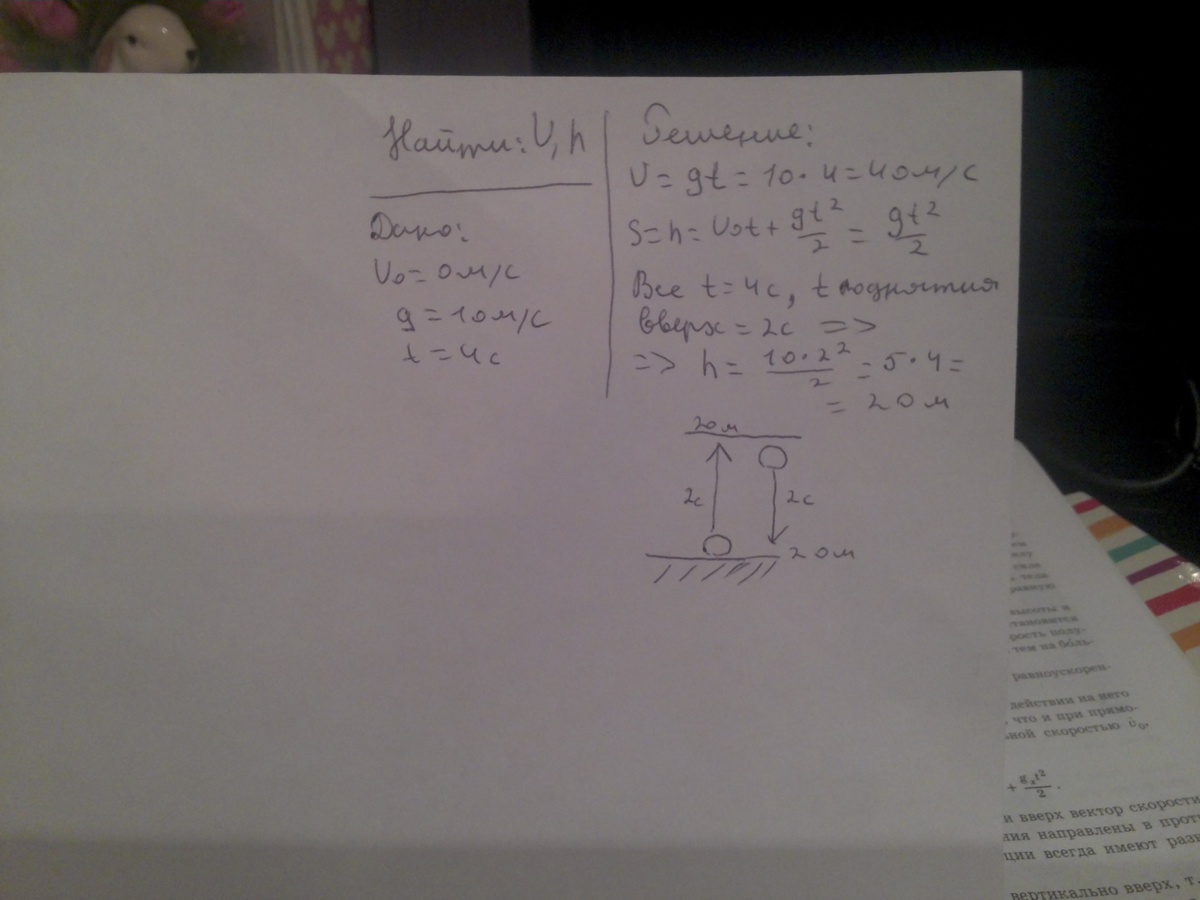 Найти: V, h
Дано:
V₀ = 0 м/с
g = 10 м/с
t = 4 с
Решение:
V = gt = 10 · 4 = 40 м/с
S = h = V₀t + gt²/2 = gt²/2
Все t = 4 с, t поднятия
вверх = 2 с =>
=> h = 10 · 2²/2 = 5 · 4 =
= 20 м
20 м
2с 2с
20 м
высоты и
становится
рость полу-
тем на боль-
равноускорен-
действии на него
что и при прямо-
ной скоростью v₀,
+ gₓt²/2.
и вверх вектор скорости
ния направлены в проти
ции всегда имеют разн
вертикально вверх, т.